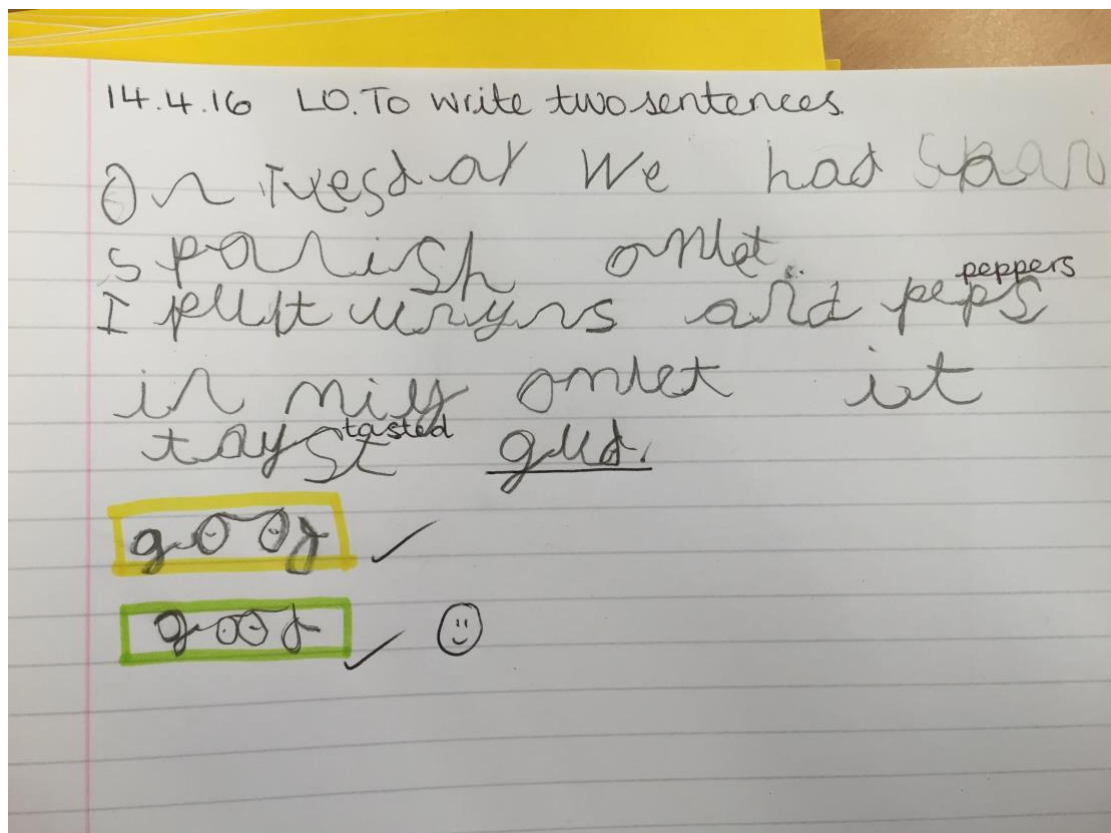 14.4.16 LO. To write two sentences.
On Tuesday We had span
spanish omlet.
peppers
I putt unyns and peps
in miy omlet it
tasted
tayst gud.
good
good